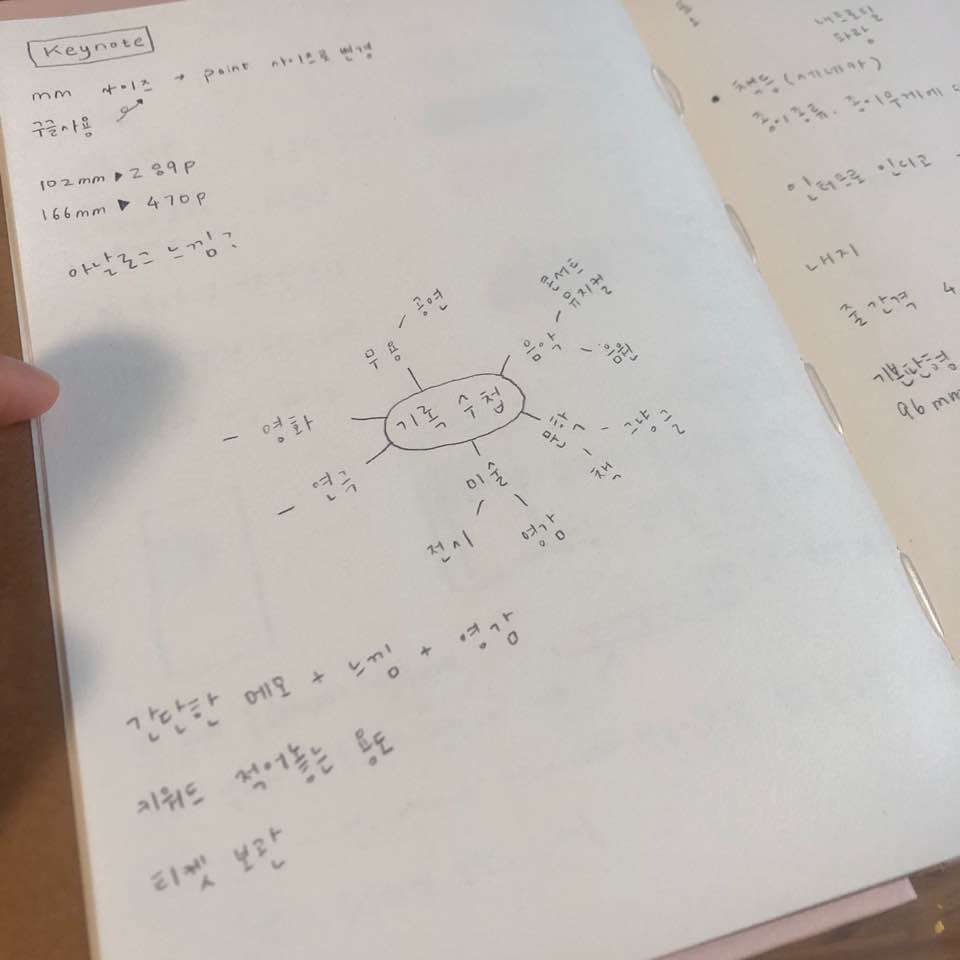 Keynote
mm 사이즈 → point 사이즈로 변경
구글사용
102mm ▶ 289p
166mm ▶ 470p
아날로그 느낌?
무용 - 공연
음악 - 콘서트 뮤지컬
- 음원
영화 -
기록 수첩
문학 - 그냥 글
- 책
연극 -
미술
전시
영감
간단한 메모 + 느낌 + 영감
키워드 적어놓는 용도
티켓 보관
내프로틸
파랑
• 책등 (세네카)
종이종류, 종이무게에
인터프로 인디고
내지
줄간격 4.
기본판형
96mm